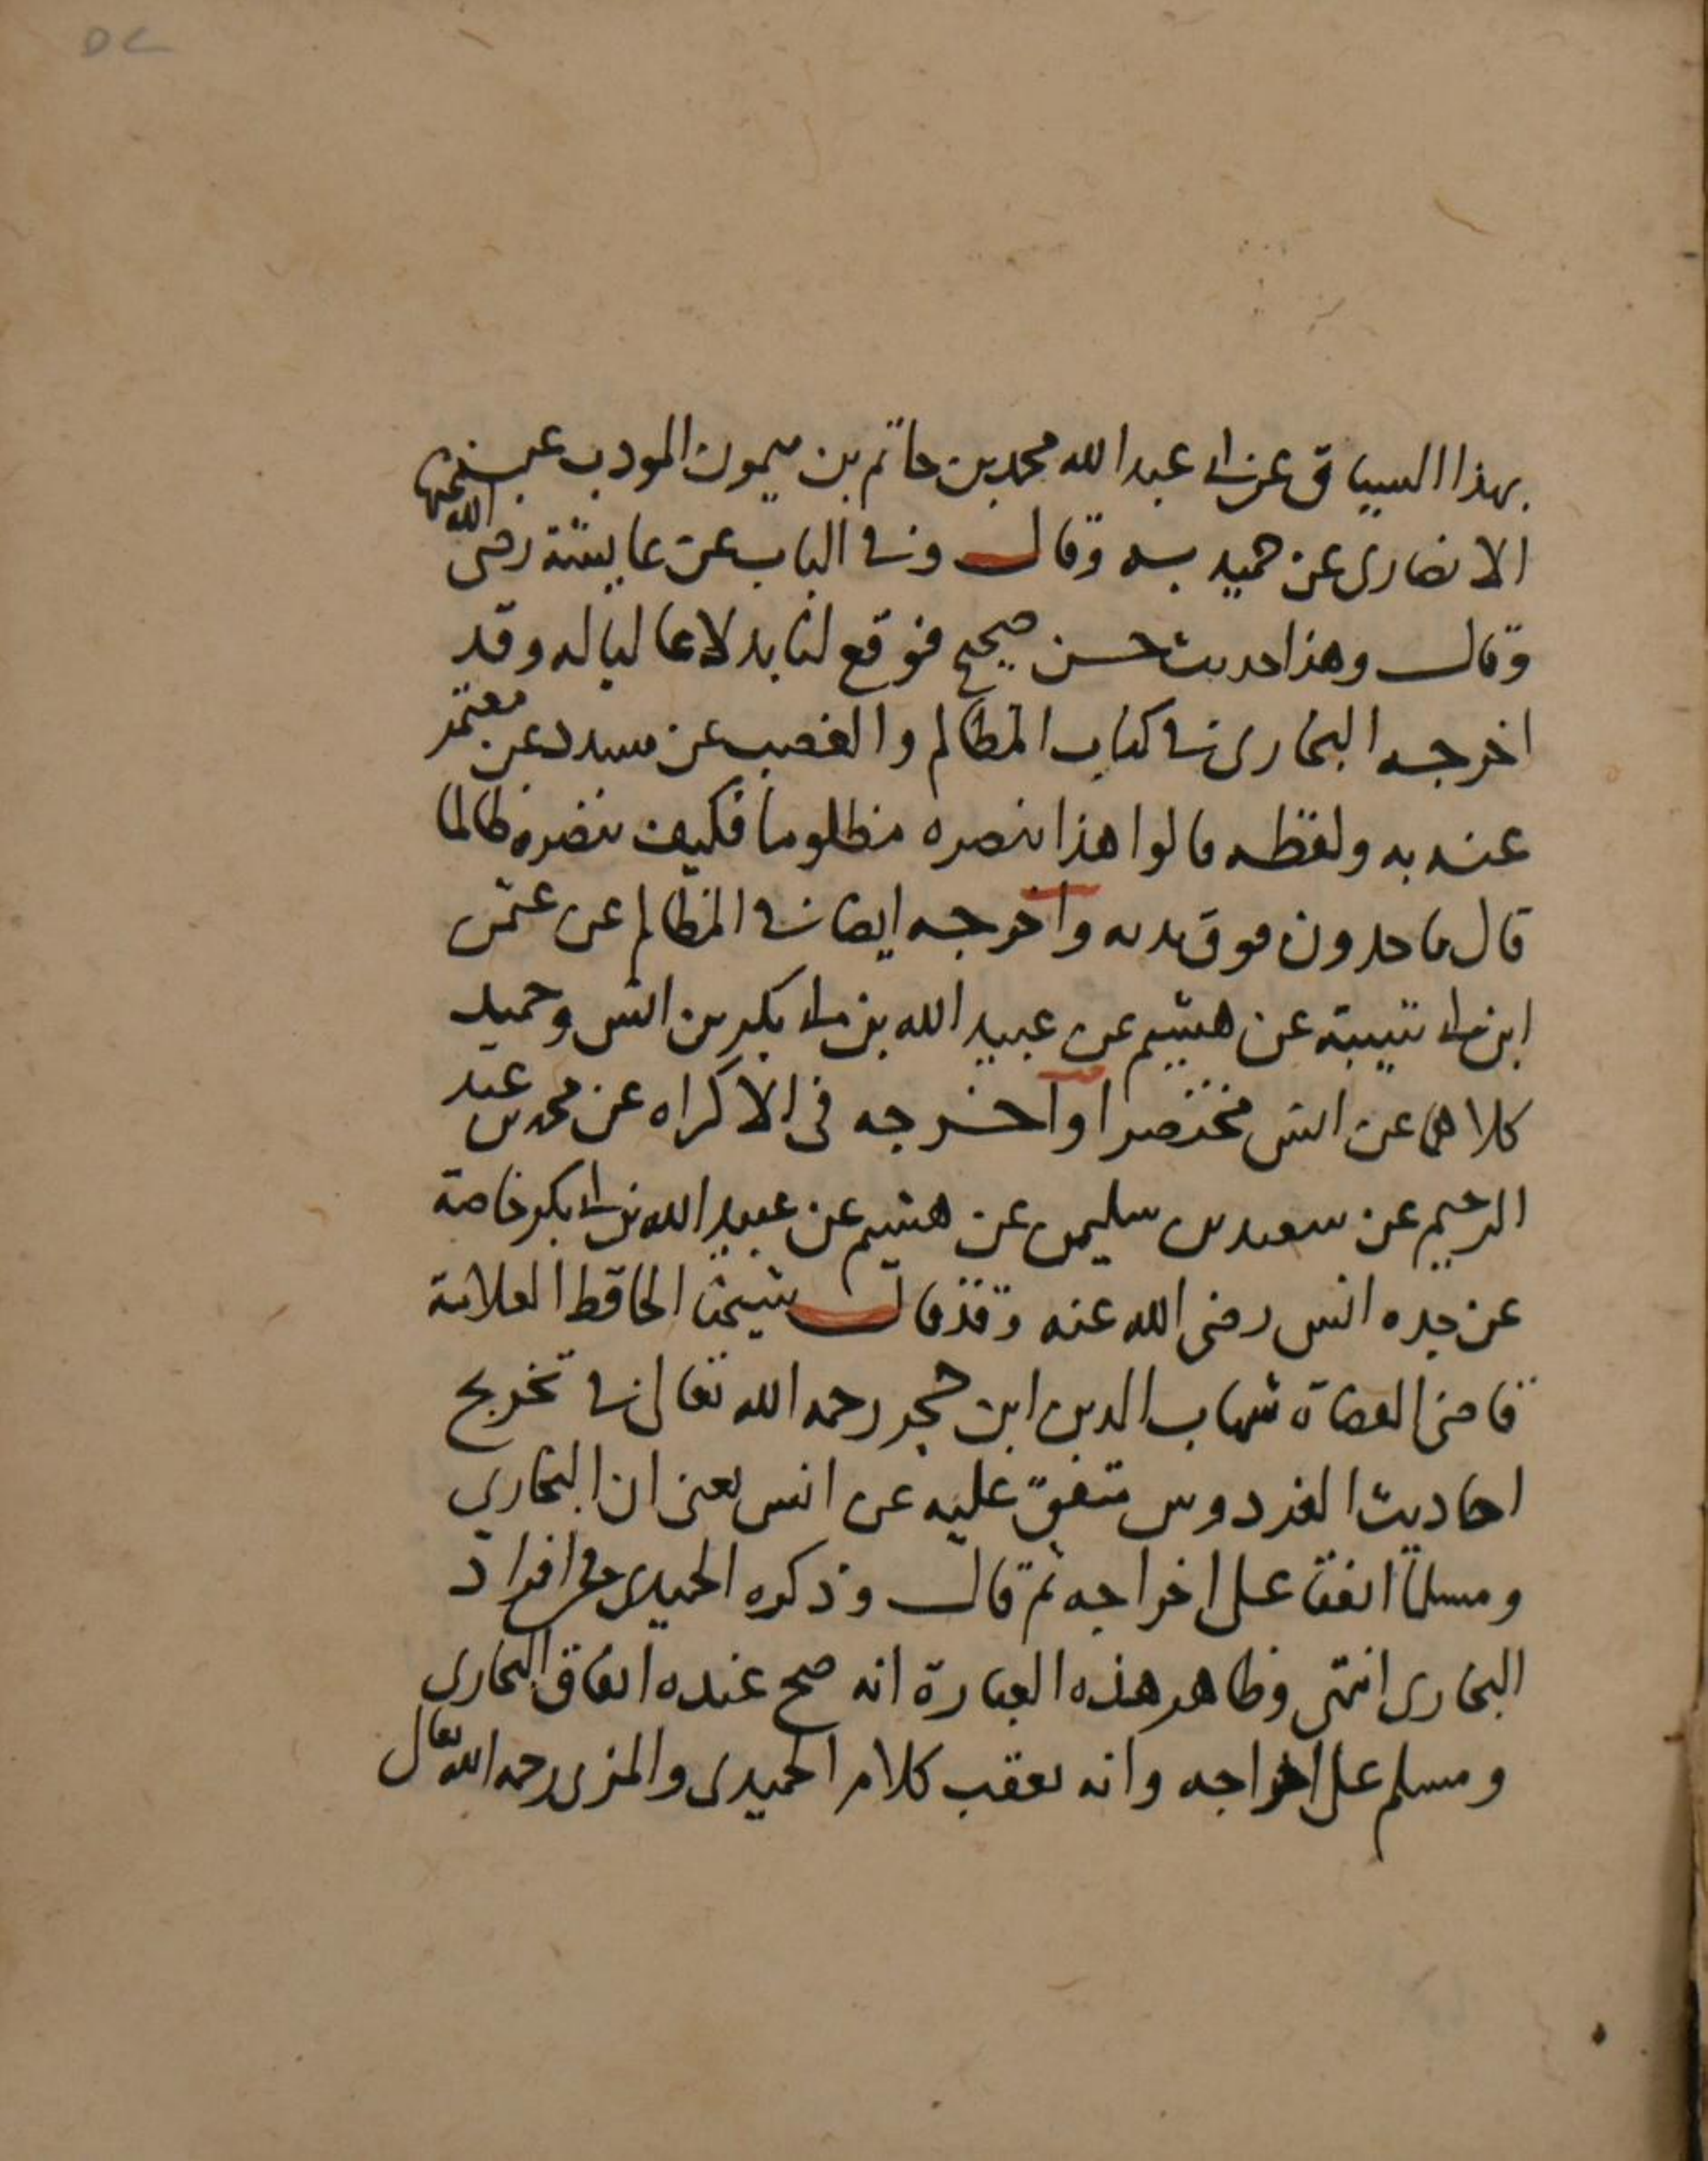 بهذا السياق عن ابى عبد الله محمد بن حاتم بن ميمون المودب عن
الانصارى عن حميد به وقال وفى الباب عن عايشة رضى الله عنها
وقال وهذا حديث حسن صحيح فوقع لنا بدلا عاليا له وقد
اخرجه البخارى فى كتاب المظالم والغصب عن مسدد عن معتمر
عنه به ولفظه قالوا هذا ننصره مظلوما فكيف ننصره ظالما
قال تاخذون فوق يديه واخرجه ايضا فى المظالم عن عثمن
ابن ابى شيبة عن هشيم عن عبيد الله بن ابى بكر بن انس وحميد
كلاهما عن انس مختصرا واخرجه فى الاكراه عن محمد بن عبد
الرحيم عن سعيد بن سليمن عن هشيم عن عبيد الله بن ابى بكر خاصة
عن جده انس رضى الله عنه وقد قال شيخنا الحافظ العلامة
قاضى القضاة شهاب الدين ابن حجر رحمه الله تعالى فى تخريج
احاديث الفردوس متفق عليه عن انس يعنى ان البخارى
ومسلما اتفقا على اخراجه ثم قال وذكره الحميدى فى افراد
البخارى انتهى وظاهر هذه العبارة انه صح عنده اتفاق البخارى
ومسلم على اخراجه وانه تعقب كلام الحميدى والمزى رحمه الله تعالى